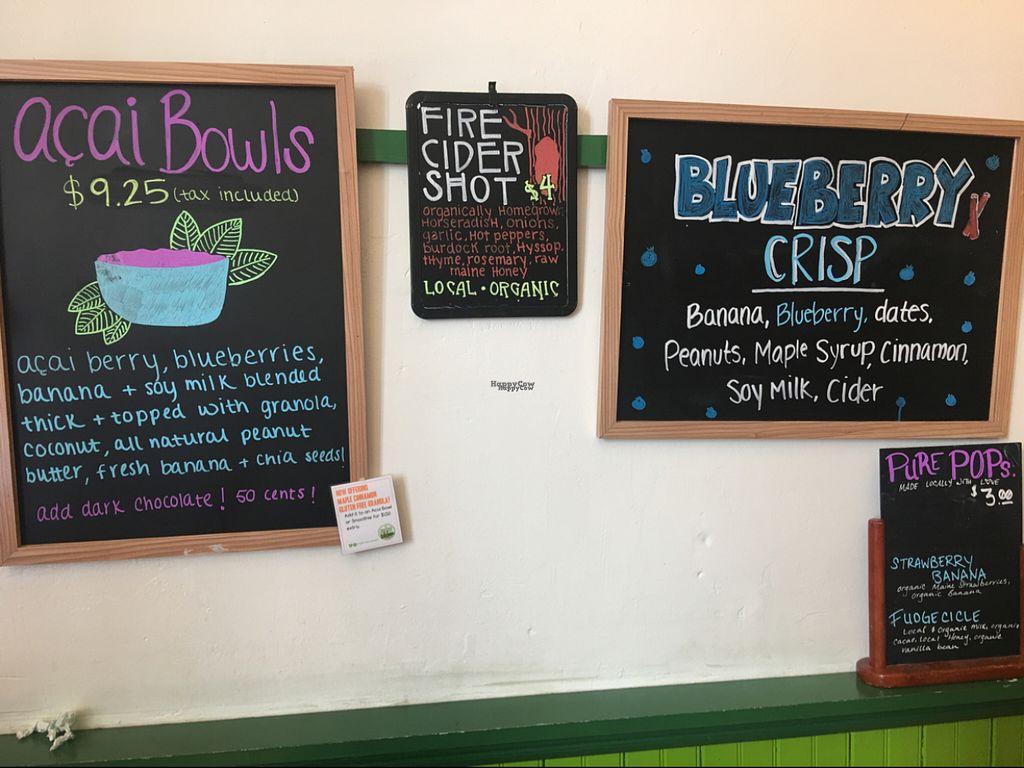 açai Bowls
$9.25 (tax included)
açai berry, blueberries,
banana + soy milk blended
thick + topped with granola,
coconut, all natural peanut
butter, fresh banana + chia seeds!
add dark chocolate! 50 cents!
NOW OFFERING
MAPLE CINNAMON
GLUTEN FREE GRANOLA!
Add it to an Acai Bowl
or Smoothie for $1.50
extra.
FIRE
CIDER
SHOT $4
organically Homegrown
Horseradish, onions,
garlic, Hot peppers,
burdock root, Hyssop,
thyme, rosemary, raw
maine Honey
LOCAL • ORGANIC
HappyCow
HappyCow
BLUEBERRY
CRISP
Banana, Blueberry, dates,
Peanuts, Maple Syrup, Cinnamon,
Soy Milk, Cider
PURE POPs:
MADE LOCALLY WITH LOVE
$3.00
STRAWBERRY
BANANA
organic Maine Strawberries,
organic Banana
FUDGECICLE
Local & organic milk, organic
cacao, local Honey, organic
vanilla bean